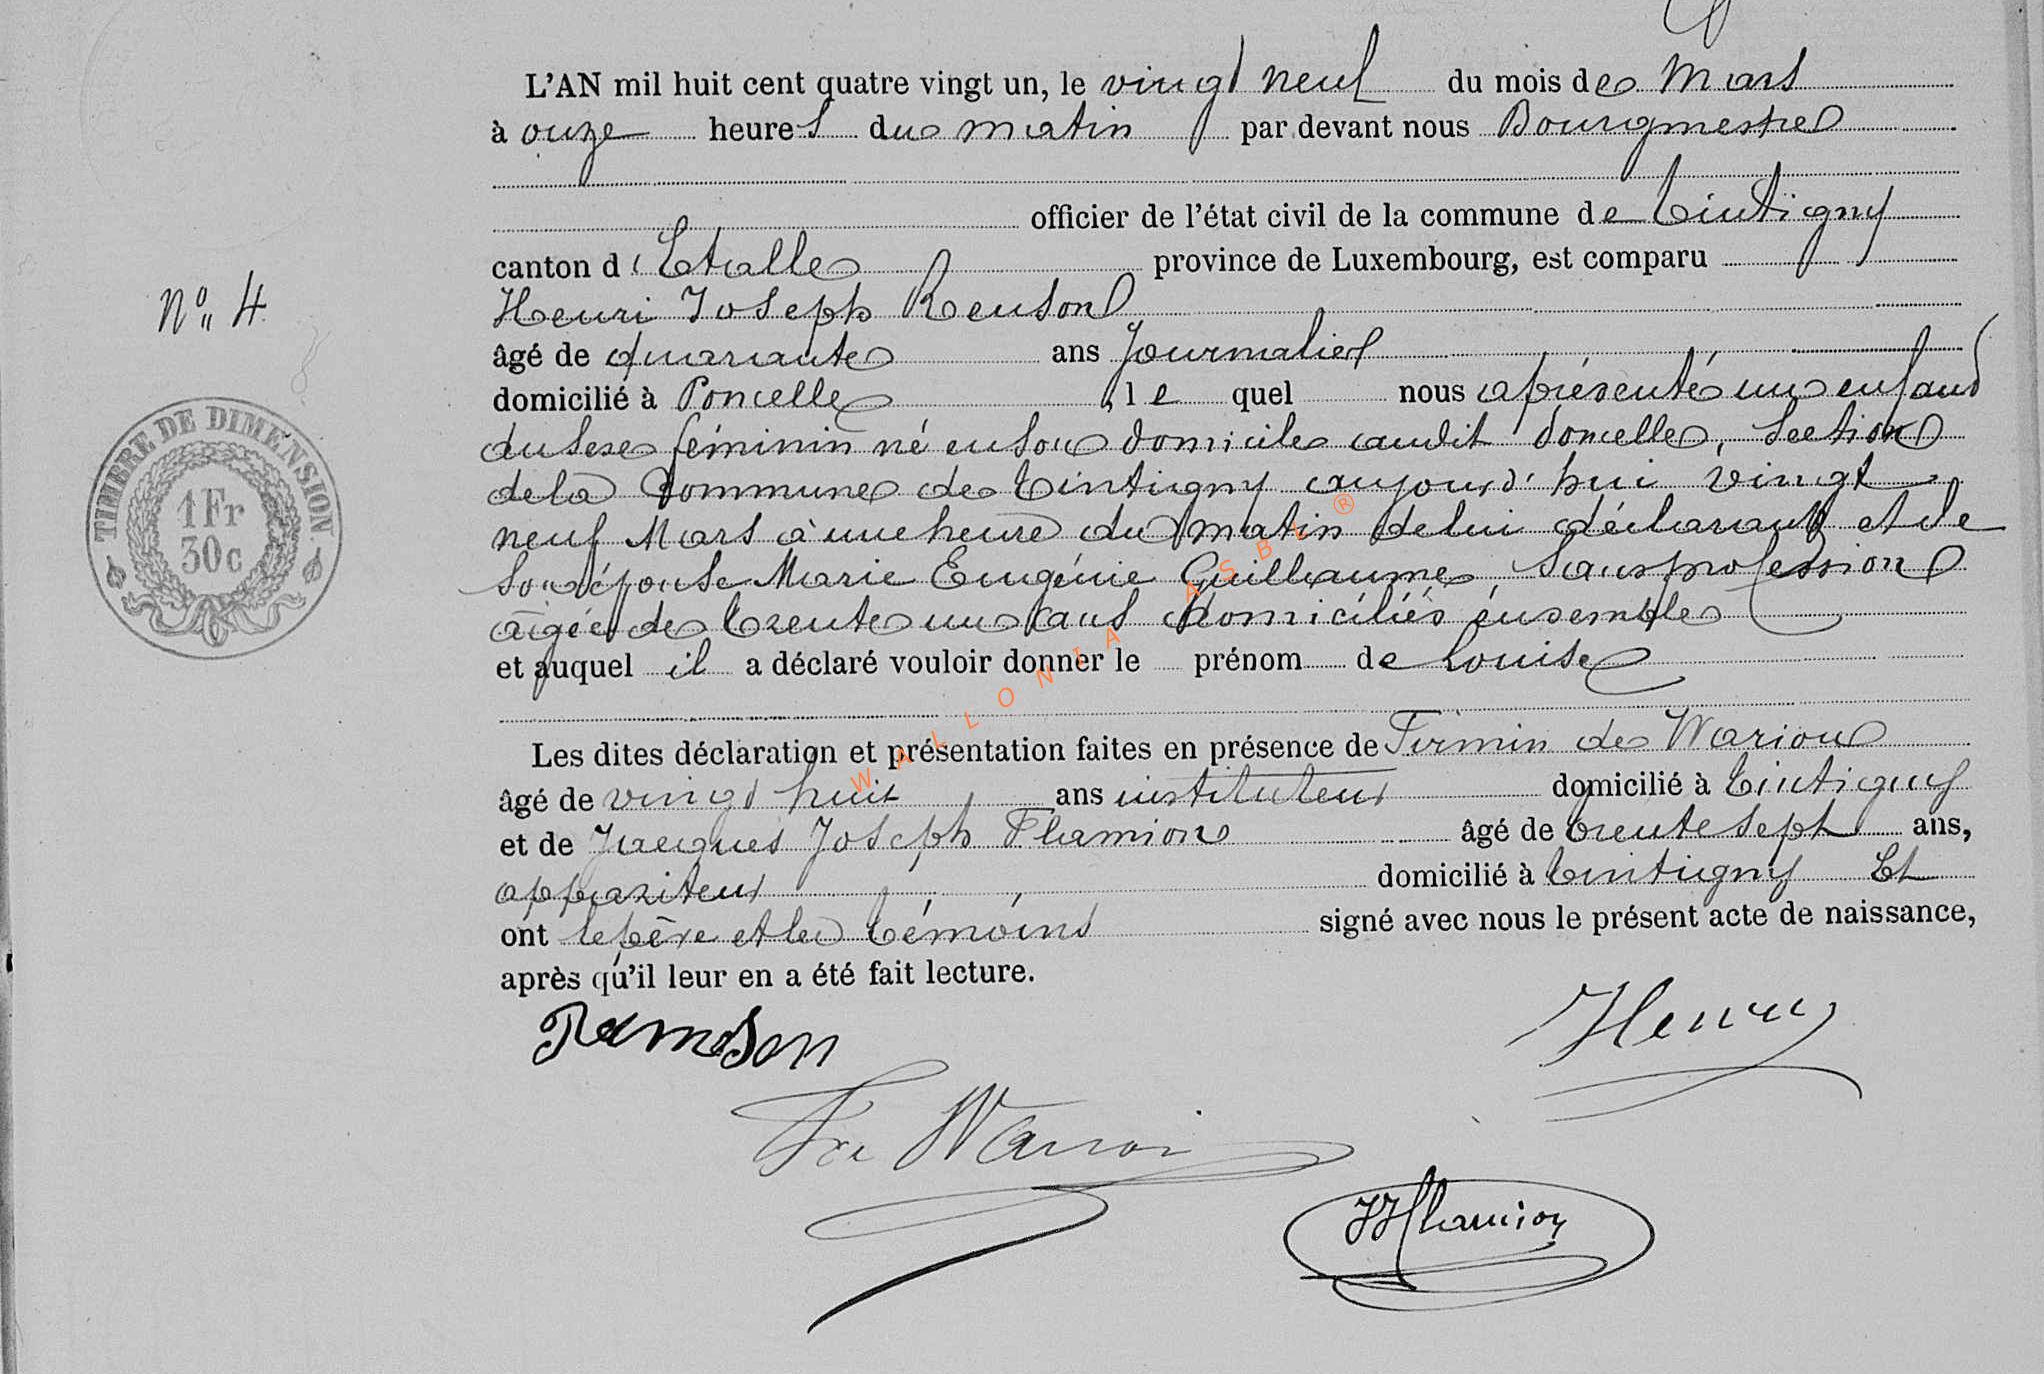 L'AN mil huit cent quatre vingt un, le vingt neuf du mois de Mars
à onze heures du matin par devant nous Bourgmestre
officier de l'état civil de la commune de Tintigny
canton d'Etalle province de Luxembourg, est comparu
N° 4
Henri Joseph Renson
âgé de quarante ans Journalier
domicilié à Poncelle, le quel nous a présenté un enfant
du sexe féminin né en son domicile audit Poncelle, section
de la Commune de Tintigny aujourd'hui vingt
neuf Mars à une heure du matin de lui déclarant et de
son épouse Marie Eugénie Guillaume, sans profession
âgée de trente un ans domiciliés ensemble
et auquel il a déclaré vouloir donner le prénom de Louise
Les dites déclaration et présentation faites en présence de Firmin de Warion
âgé de vingt huit ans instituteur domicilié à Tintigny
et de Jacques Joseph Flamion âgé de trente sept ans,
appariteur domicilié à Tintigny Et
ont le père et les témoins signé avec nous le présent acte de naissance,
après qu'il leur en a été fait lecture.
Henry
JJ Flamion
TIMBRE DE DIMENSION
1 Fr
30c
WALLONIA ASBL ®